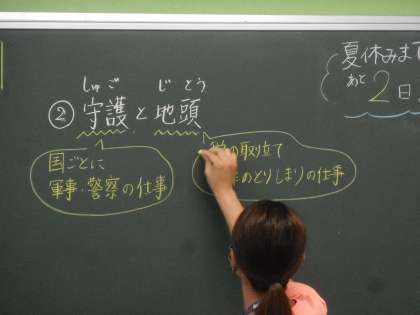 しゅご じとう
② 守護と地頭
国ごとに
軍事・警察の仕事
の取立て
のとりしまりの仕事
夏休みまで
あと2日